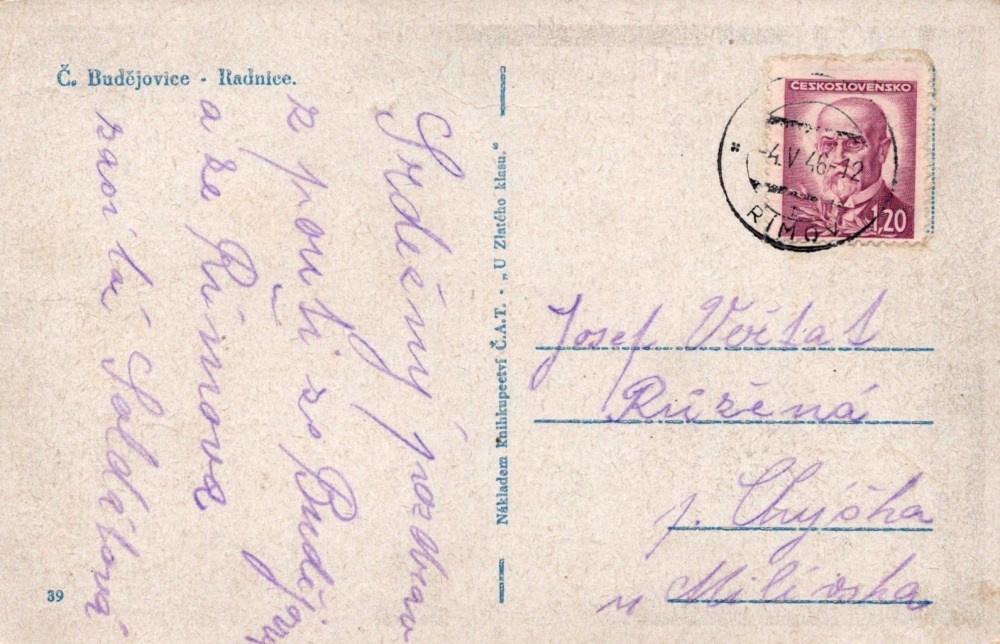 Č. Budějovice - Radnice.
Srdečný pozdrav
z pouti ze Budějovic
a ze Římova
Nákladem Knihkupectví Č.A.T. - „U Zlatého klasu."
39
ČESKOSLOVENSKO
1,20
-4.V.46-12
ŘÍMOV
Josef Vořtat
Růžěná
p. Chýšňa
u Milévska